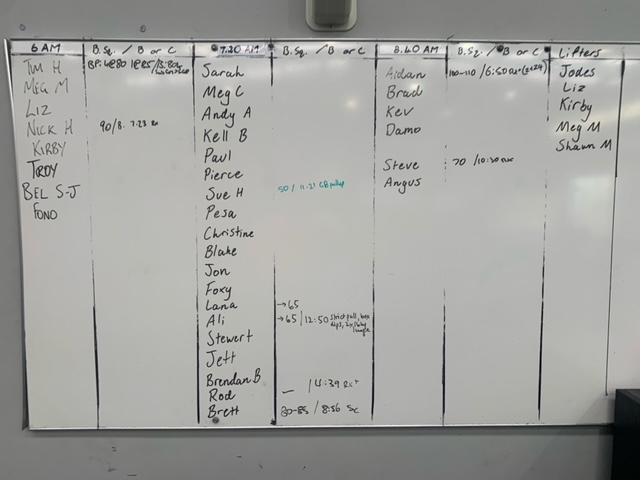 6 AM
B.Sq. / B or C
7.20 AM
B.Sq. / B or C
8.40 AM
B.Sq. / B or C
Lifters
Tim H
Meg M
Liz
Nick H 90/8. 7.23 Rx
Kirby
Troy
Bel S-J
Fono
Sarah
Meg C
Andy A
Kell B
Paul
Pierce
Sue H 50 / 11.21
Pesa
Christine
Blake
Jon
Foxy
Lana →65
Ali →65 / 12:50 Strict pull, box
dips,
lunge
Stewert
Jett
Brendan B
Rod — / 14:39 Rx+
Brett 80-85 / 8:56 Sc
Aidan 100-110 / 6:50 Rx+ (2x24)
Brad
Kev
Damo
Steve 70 / 10:30
Angus
Jodes
Liz
Kirby
Meg M
Shawn M